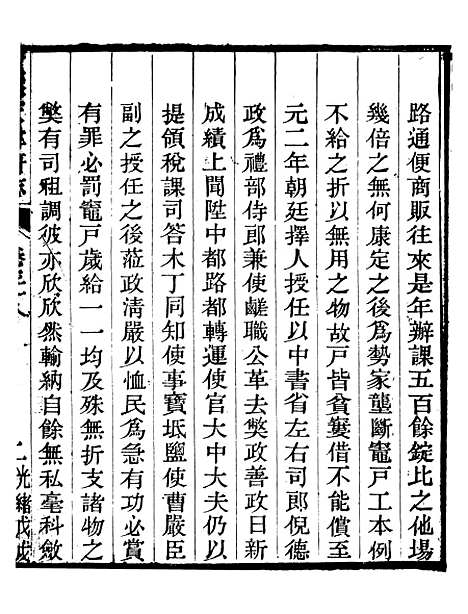 路通便商販往來是年辦課五百餘錠比之他場
幾倍之無何康定之後為勢家壟斷竈戶工本例
不給之折以無用之物故戶皆貧窶借不能償至
元二年朝廷擇人授任以中書省左右司郎倪德
政為禮部侍郎兼使鹺職公革去獘政善政日新
成績上聞陞中都路都轉運使官大中大夫仍以
提領稅課司答木丁同知使事寶坻鹽使曹嚴臣
副之授任之後蒞政清嚴以恤民為急有功必賞
有罪必罰竈戶歲給一一均及殊無折支諸物之
獘有司租調彼亦欣欣然輸納自餘無私毫科斂
光緒戊戌